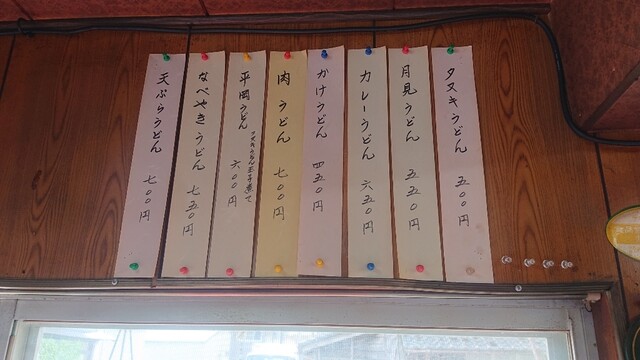 タヌキうどん 五〇〇円
月見うどん 五五〇円
カレーうどん 六五〇円
かけうどん 四五〇円
肉うどん 七〇〇円
平岡うどん 六〇〇円
なべやきうどん 七五〇円
天ぷらうどん 七〇〇円